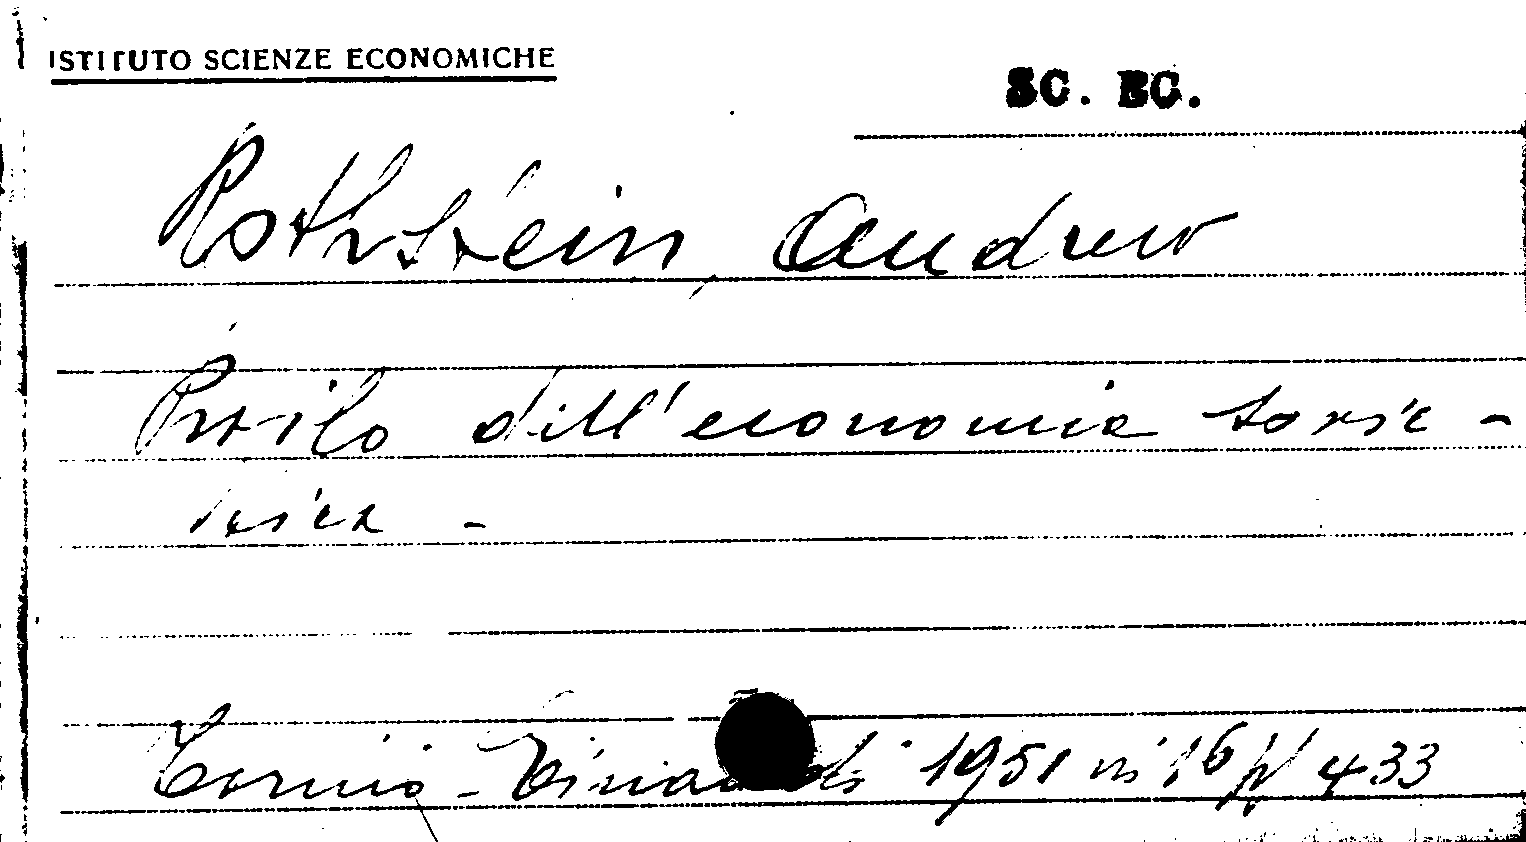 ISTITUTO SCIENZE ECONOMICHE
SC. EC.
Rothstein, Andrew
Profilo dell'economia sovie-
tica -
Torino - Einaudi 1951 in 16 pp 433